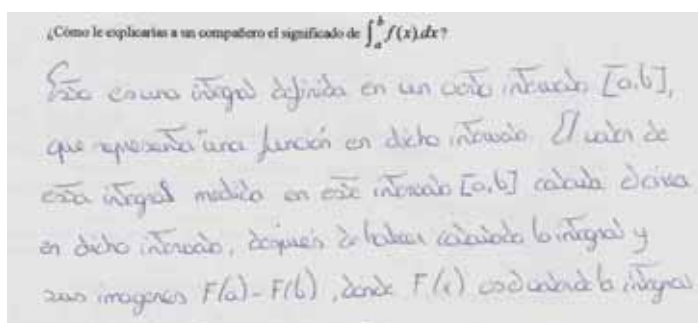 ¿Cómo le explicarías a un compañero el significado de ∫_a^b f(x).dx ?
Esto es una integral definida en un cierto intervalo [a,b],
que representa una función en dicho intervalo. El valor de
esta integral medida en este intervalo [a,b] calcula el área
en dicho intervalo, después de haber calculado la integral y
sus imagenes F(a) - F(b), donde F(x) es el valor de la integral